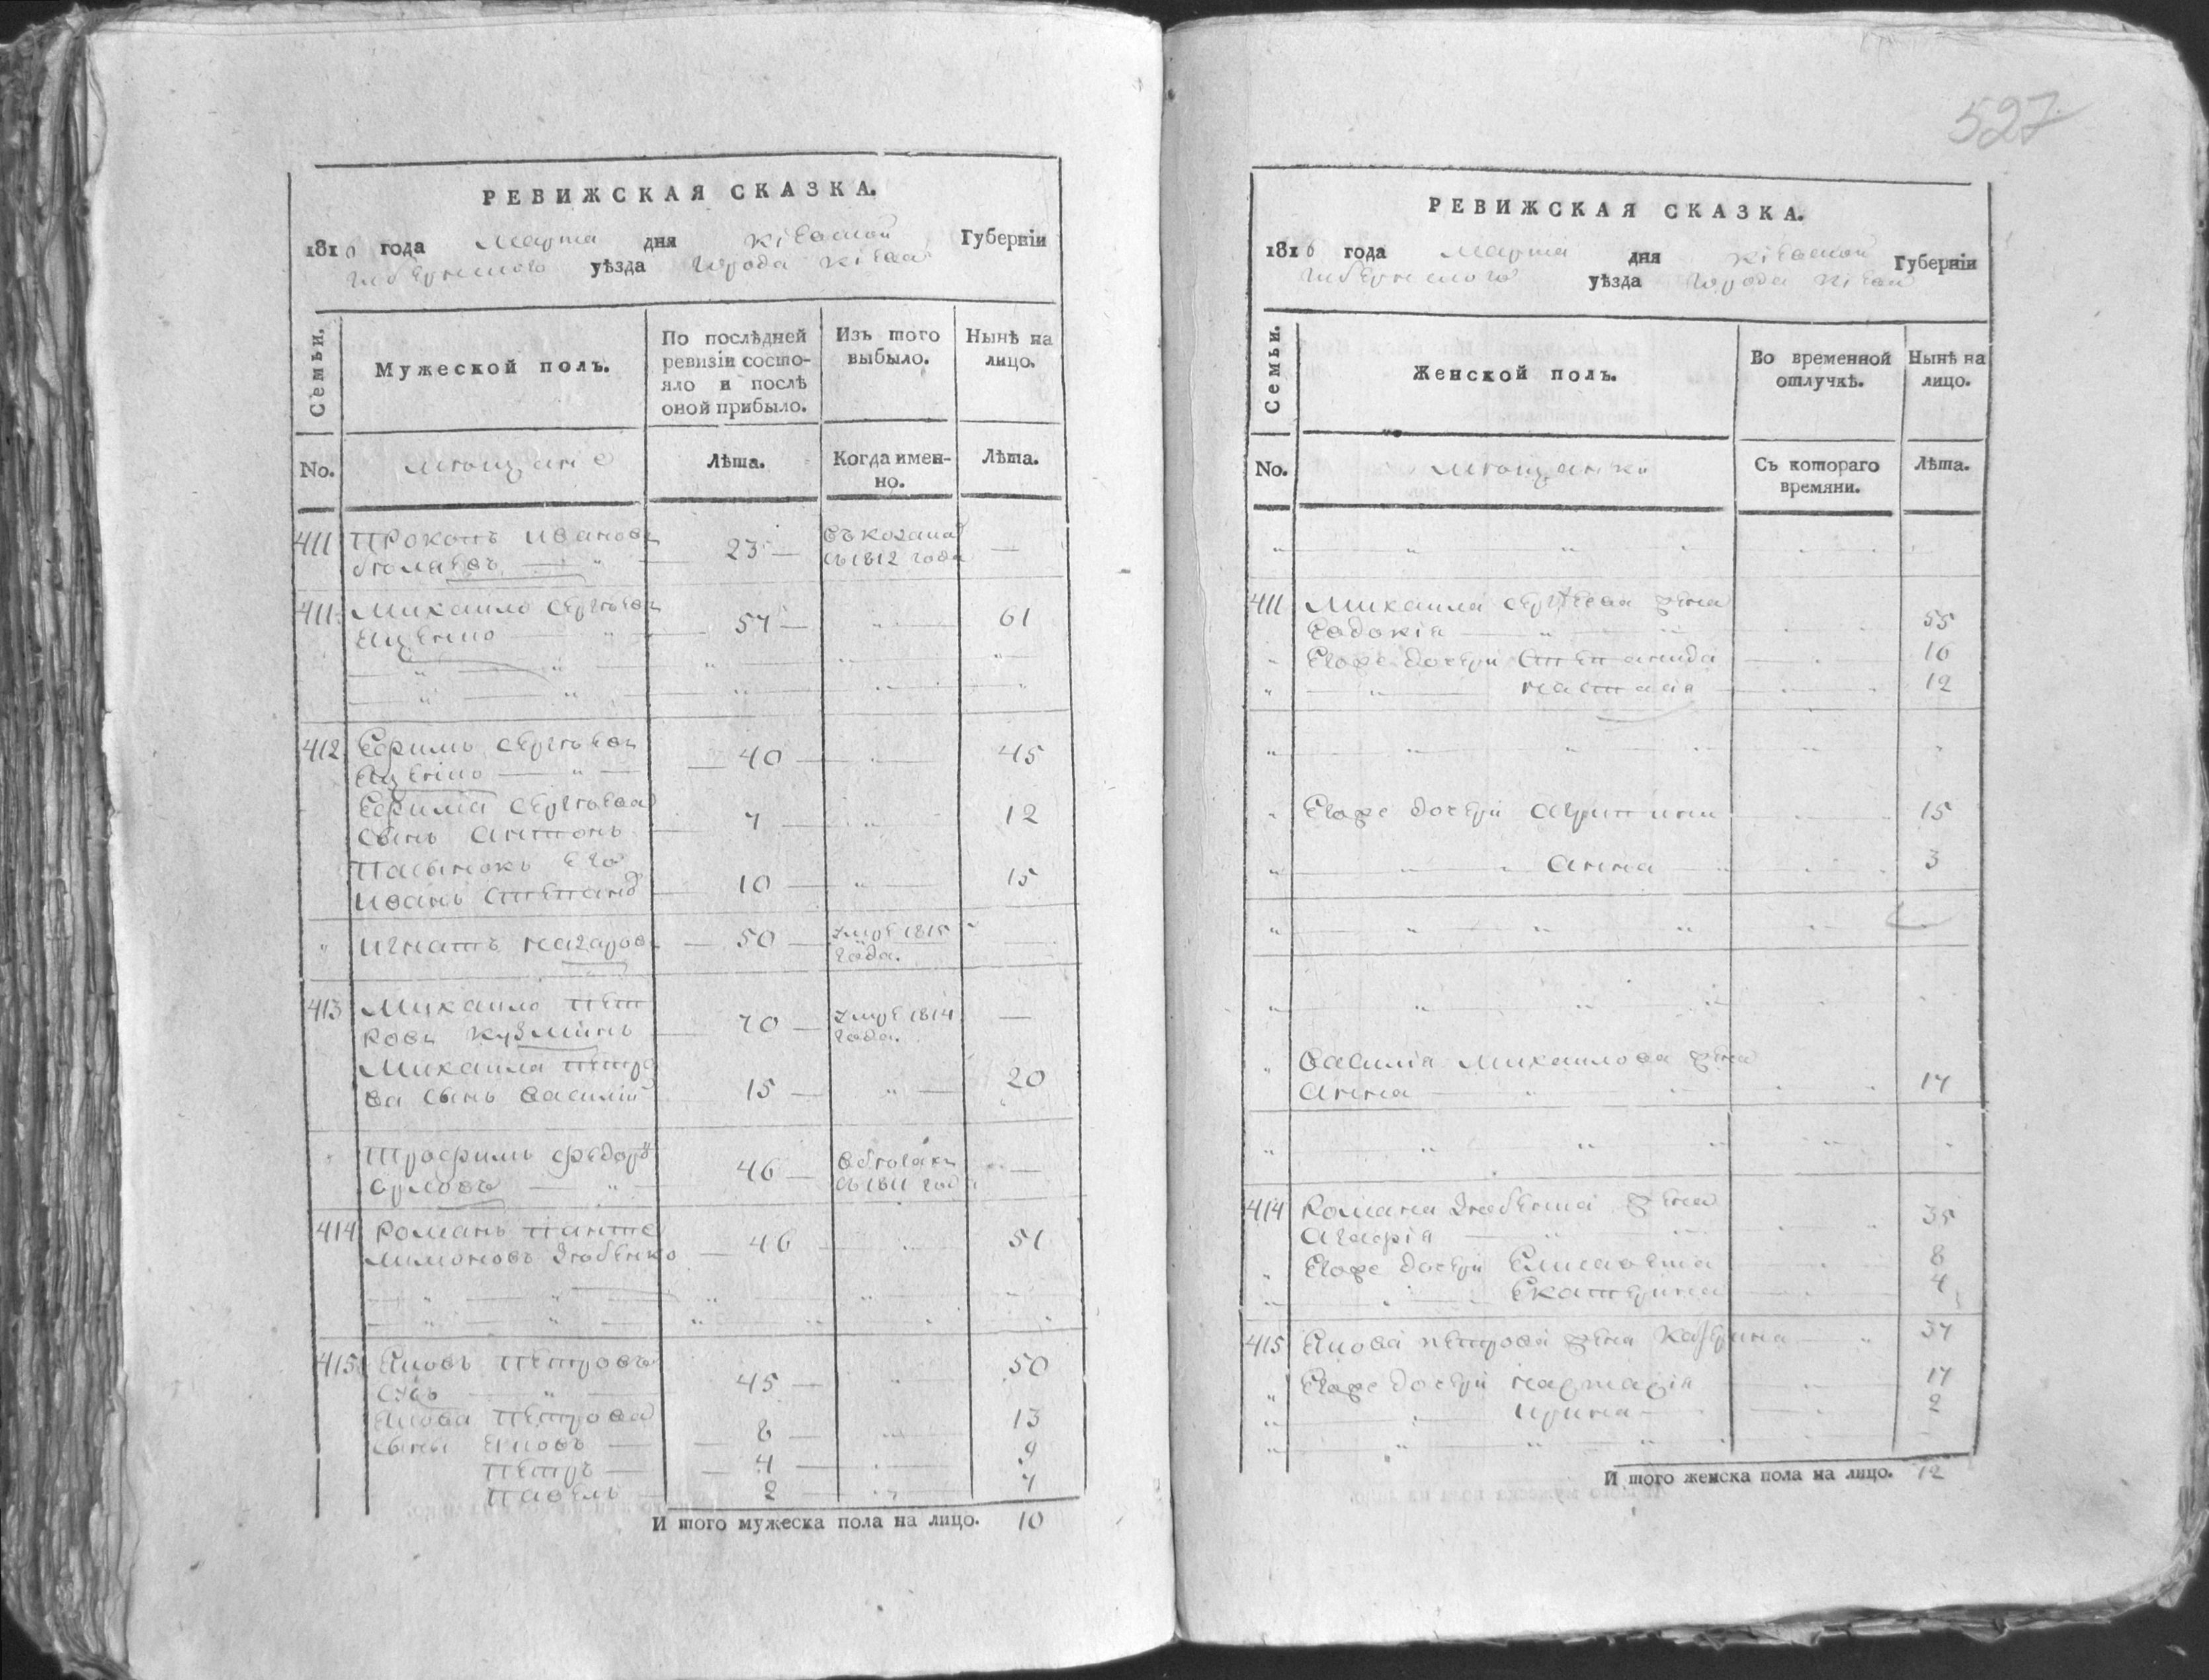 527
РЕВИЖСКАЯ СКАЗКА.
181 года Марта дня Кіевской Губерніи
уѣзда города Кіева
Семьи.
Мужеской полъ.
По послѣдней ревизіи состояло и послѣ оной прибыло.
Изъ того выбыло.
Нынѣ на лицо.
No.
мѣщане
Лѣта.
Когда именно.
Лѣта.
411 Прокопъ Ивановъ 23 —
съ 1812 года
411 Михайло Сергѣевъ 57 — 61
412 Ефимъ Сергѣевъ 40 — 45
Ефима Сергѣева
сынъ Антонъ 7 12
Пасынокъ его
Иванъ 10 — 15
Игнатъ Назаровъ 50 — умре 1815
года.
413 Михайло Пет
ровъ Кузминъ 70 — умре 1814
года.
Михайла Петро
ва сынъ Василій 15 — 20
Трофимъ Федоро
Орловъ 46 — въ бѣгахъ
съ 1811 года
414 Романъ Панте
лимоновъ 46 51
415 Яковъ Петровъ
45 — 50
Якова Петрова
сыны Яковъ — 8 — 13
Петръ — 4 — 9
Павелъ 2 — 7
И того мужеска пола на лицо. 10
РЕВИЖСКАЯ СКАЗКА.
181 года Марта дня Кіевской Губерніи
уѣзда города Кіева
Семьи.
Женской полъ.
Во временной отлучкѣ.
Нынѣ на лицо.
No.
мѣщанки
Съ котораго времяни.
Лѣта.
411 Михайла Сергѣева жена
Евдокія 55
Егоже дочери Степанида 16
Настасія 12
Егоже дочери 15
Анна 3
Василія Михайлова жена
Анна 17
414 Романа жена
Агафія 35
Егоже дочери Елисавета 8
Екатерина 4
415 Якова Петрова жена 37
Егоже дочери 17
Ирина 2
И того женска пола на лицо. 12